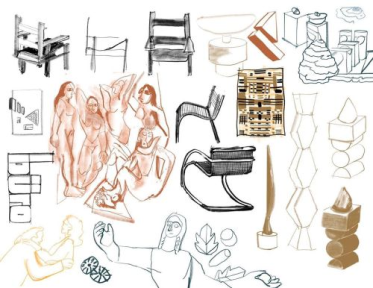 büro